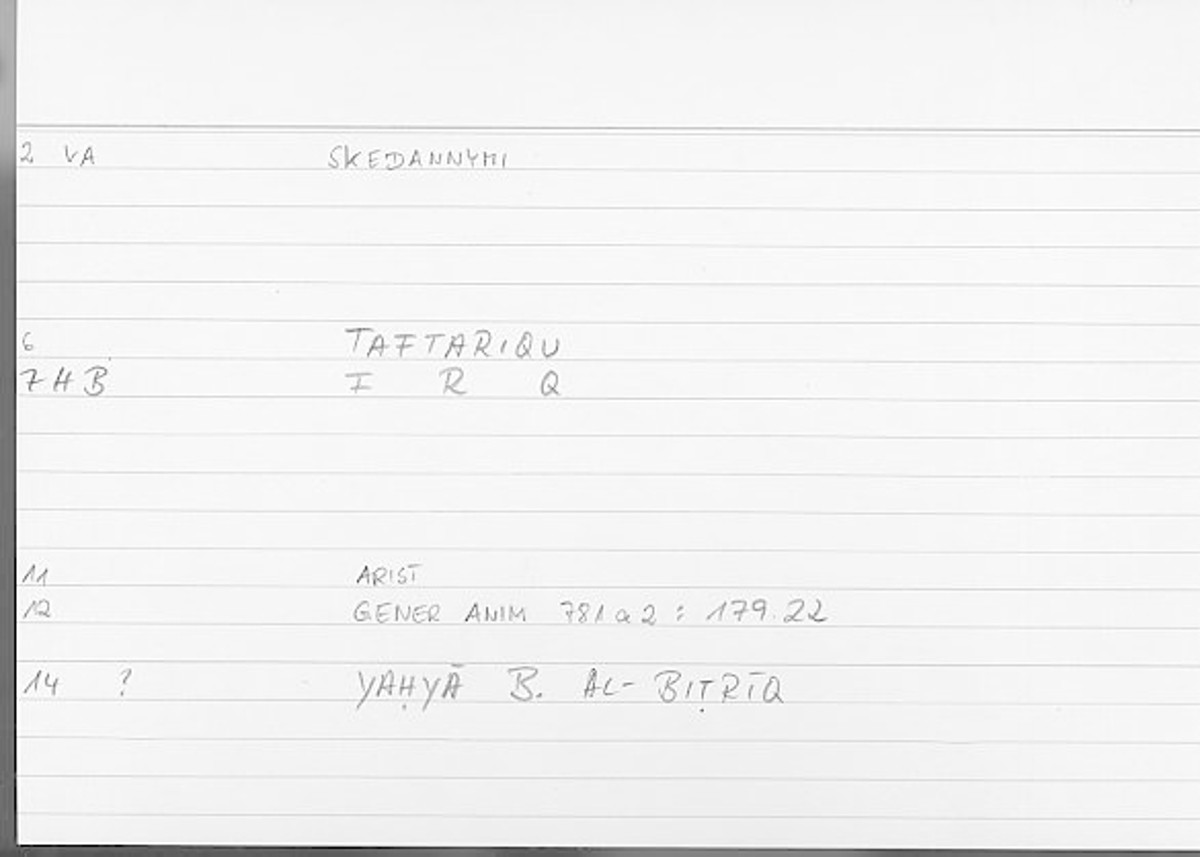 2 VA SKEDANNYMI
6 TAFTARIQU
7 H B F R Q
11 ARIST
12 GENER ANIM 781 a 2 : 179.22
14 ? YAḤYĀ B. AL-BIṬRĪQ